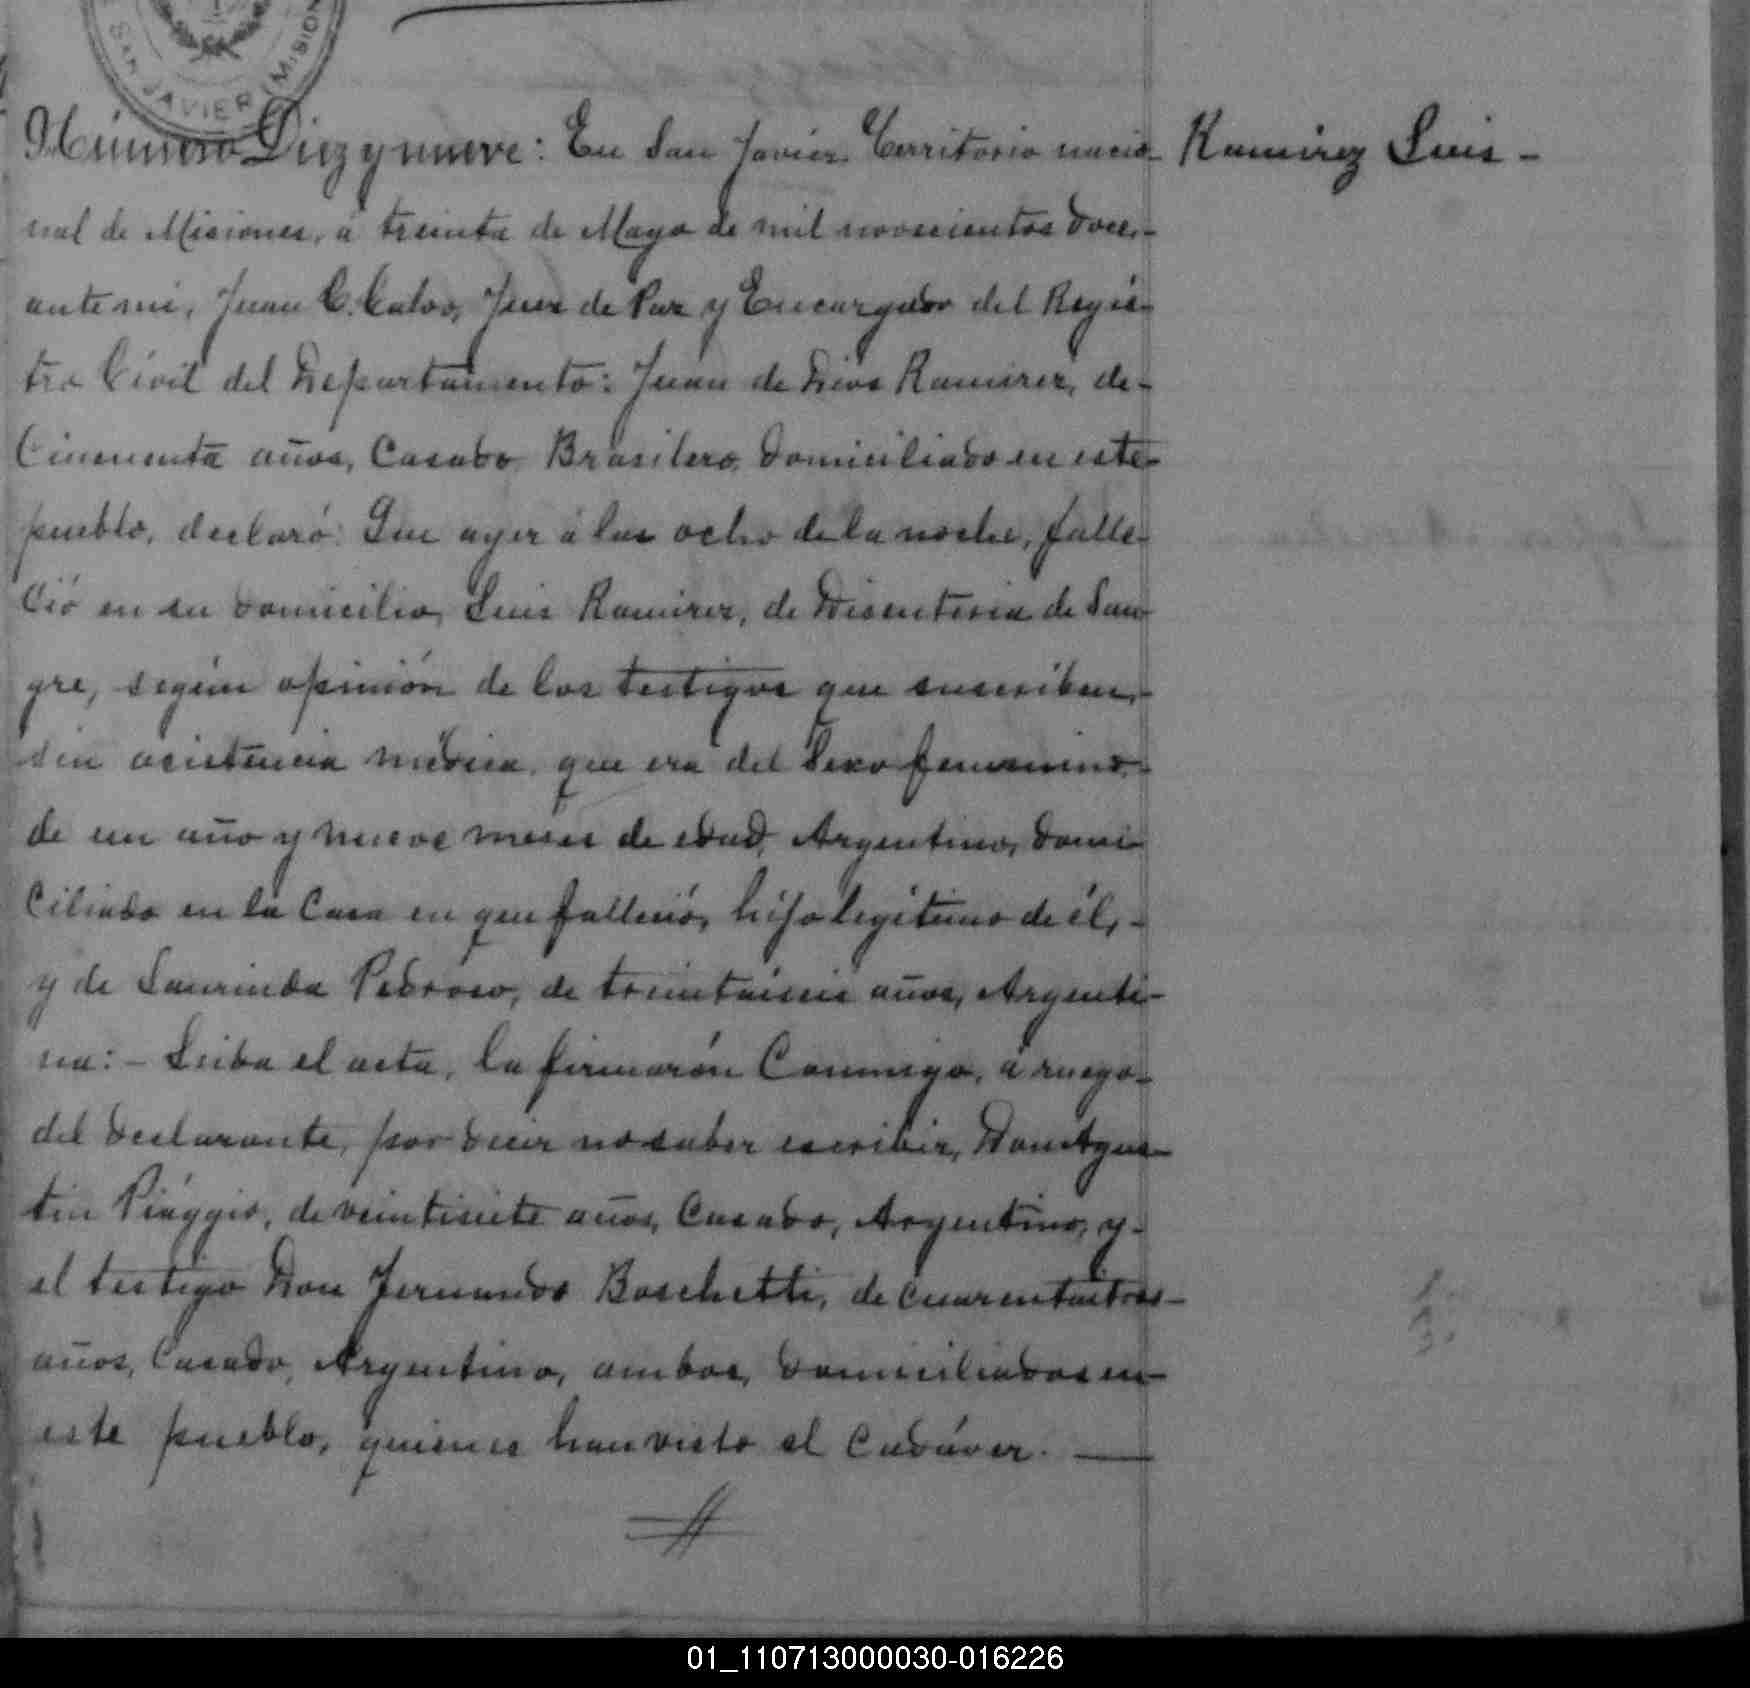 SAN JAVIER (MISION
Número Diez y nueve: En San Javier Territorio nacio-
Ramirez Luis -
nal de Misiones, á treinta de Mayo de mil novecientos doce,-
ante mí, Juan C. Calvo, Juez de Paz y Encargado del Regis-
tro Civil del Departamento: Juan de Dios Ramirez, de-
Cincuenta años, Casado Brasilero, domiciliado en este-
pueblo, declaró: Que ayer á las ocho de la noche, falle-
ció en su domicilio, Luis Ramirez, de Disenteria de San-
gre, según opinión de los testigos que suscriben,-
sin asistencia médica, que era del Sexo femenino,-
de un año y nueve meses de edad, Argentino, domi-
ciliado en la Casa en que falleció, hijo legitimo de él,-
y de Laurinda Pedroso, de treintaiseis años, Argenti-
na:- Leida el acta, la firmarón Conmigo, á ruego-
del declarante, por decir no saber escribir, Don Agus-
tin Piággio, de veintisiete años, Casado, Argentino, y-
el testigo Don Fernando Boschetti, de cuarentaitres-
años, Casado, Argentino, ambos domiciliados en-
este pueblo, quienes han visto el Cadáver. —
01_110713000030-016226